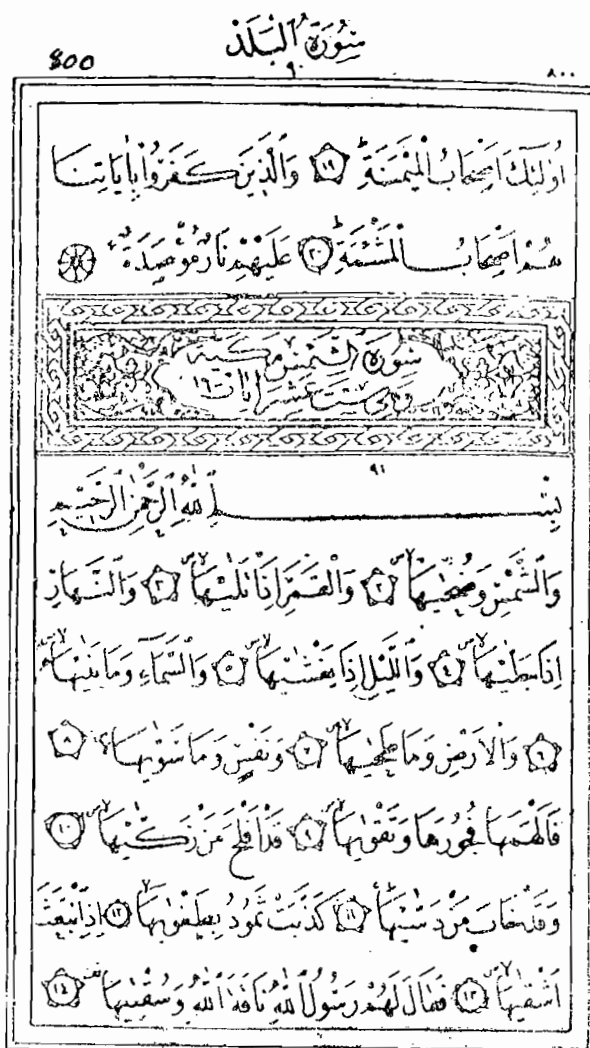 سُورَةُ الْبَلَدْ
800 ٩٠ ٨٠٠
اُولٰئِكَ اَصْحَابُ الْمَيْمَنَةِ ١٩ وَالَّذِينَ كَفَرُوا بِاٰيَاتِنَا
هُمْ اَصْحَابُ الْمَشْئَمَةِ ٢٠ عَلَيْهِمْ نَارٌ مُؤْصَدَةٌ
سُورَةُ الشَّمْسِ مَكِّيَّة
وَهِيَ سِتَّ عَشَرَ ايَات ١٦
٩١
بِسْمِ اللّٰهِ الرَّحْمٰنِ الرَّحِيمِ
وَالشَّمْسِ وَضُحٰيهَا ٢ وَالْقَمَرِ اِذَا تَلٰيهَا ٣ وَالنَّهَارِ
اِذَا جَلّٰيهَا ٤ وَالَّيْلِ اِذَا يَغْشٰيهَا ٥ وَالسَّمَآءِ وَمَا بَنٰيهَا
٦ وَالْاَرْضِ وَمَا طَحٰيهَا ٧ وَنَفْسٍ وَمَا سَوّٰيهَا ٨
فَاَلْهَمَهَا فُجُورَهَا وَتَقْوٰيهَا ٩ قَدْ اَفْلَحَ مَنْ زَكّٰيهَا ١٠
وَقَدْ خَابَ مَنْ دَسّٰيهَا ١١ كَذَّبَتْ ثَمُودُ بِطَغْوٰيهَا ١٢ اِذِ انْبَعَثَ
اَشْقٰيهَا ١٣ فَقَالَ لَهُمْ رَسُولُ اللّٰهِ نَاقَةَ اللّٰهِ وَسُقْيٰيهَا ١٤